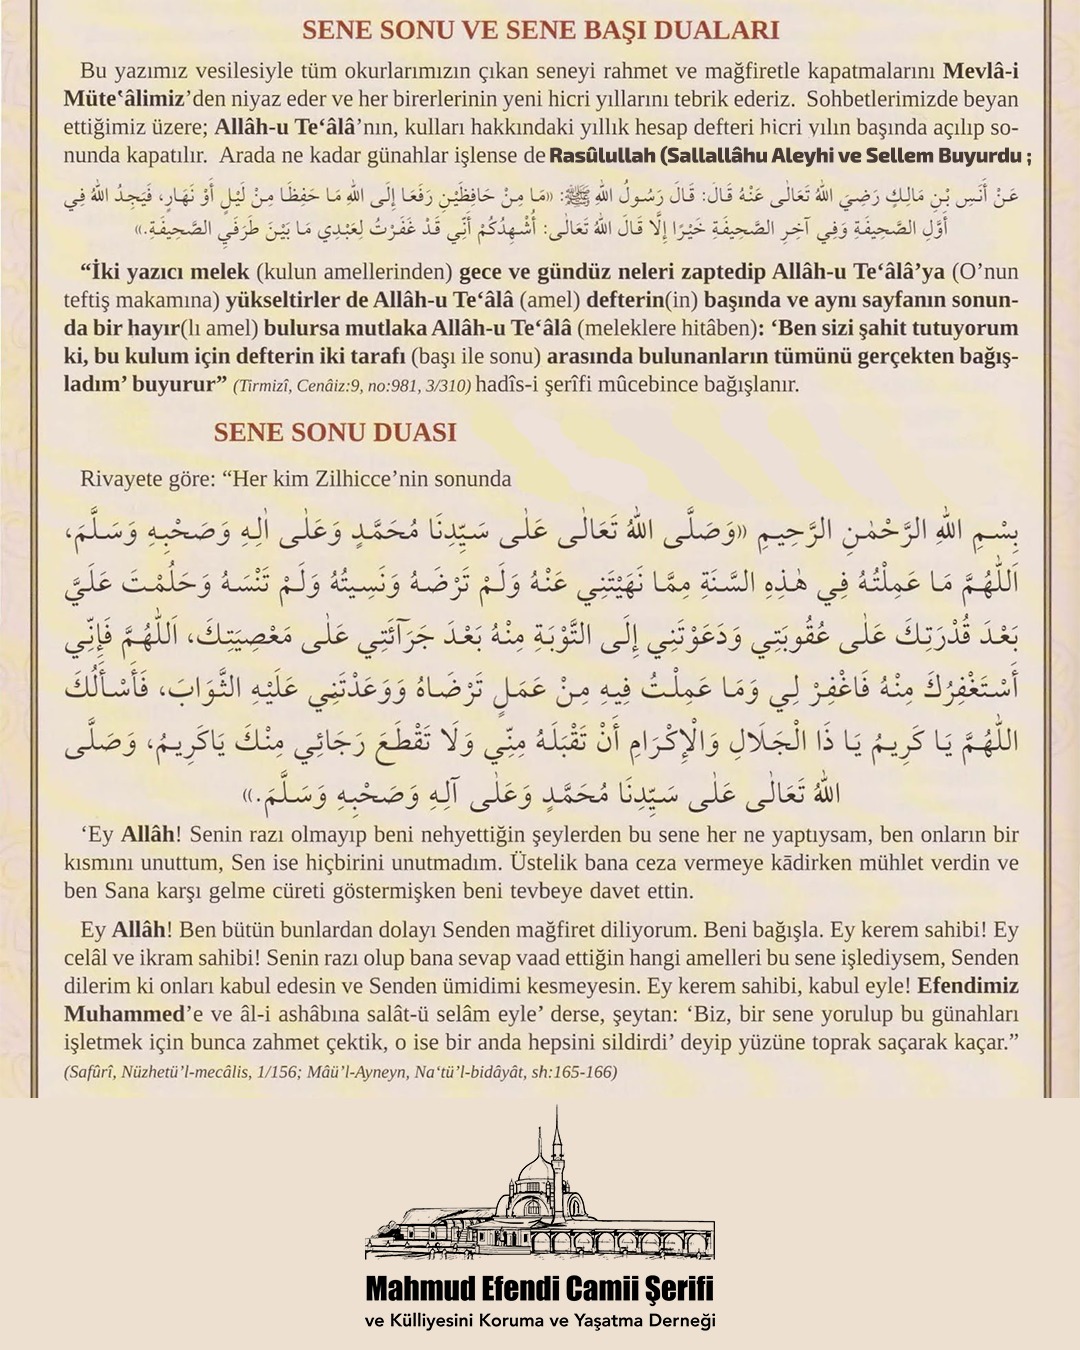 SENE SONU VE SENE BAŞI DUALARI
Bu yazımız vesilesiyle tüm okurlarımızın çıkan seneyi rahmet ve mağfiretle kapatmalarını Mevlâ-i
Müte‘âlimiz’den niyaz eder ve her birerlerinin yeni hicri yıllarını tebrik ederiz. Sohbetlerimizde beyan
ettiğimiz üzere; Allâh-u Te‘âlâ’nın, kulları hakkındaki yıllık hesap defteri hicri yılın başında açılıp so-
nunda kapatılır. Arada ne kadar günahlar işlense de Rasûlullah (Sallallâhu Aleyhi ve Sellem Buyurdu ;
عَنْ أَنَسِ بْنِ مَالِكٍ رَضِيَ اللهُ تَعَالٰى عَنْهُ قَالَ: قَالَ رَسُولُ اللهِ ﷺ: «مَا مِنْ حَافِظَيْنِ رَفَعَا إِلَى اللهِ مَا حَفِظَا مِنْ لَيْلٍ أَوْ نَهَارٍ، فَيَجِدُ اللهُ فِي
أَوَّلِ الصَّحِيفَةِ وَفِي آخِرِ الصَّحِيفَةِ خَيْرًا إِلَّا قَالَ اللهُ تَعَالٰى: أُشْهِدُكُمْ أَنِّي قَدْ غَفَرْتُ لِعَبْدِي مَا بَيْنَ طَرَفَيِ الصَّحِيفَةِ.»
“İki yazıcı melek (kulun amellerinden) gece ve gündüz neleri zaptedip Allâh-u Te‘âlâ’ya (O’nun
teftiş makamına) yükseltirler de Allâh-u Te‘âlâ (amel) defterin(in) başında ve aynı sayfanın sonun-
da bir hayır(lı amel) bulursa mutlaka Allâh-u Te‘âlâ (meleklere hitâben): ‘Ben sizi şahit tutuyorum
ki, bu kulum için defterin iki tarafı (başı ile sonu) arasında bulunanların tümünü gerçekten bağış-
ladım’ buyurur” (Tirmizî, Cenâiz:9, no:981, 3/310) hadîs-i şerîfi mûcebince bağışlanır.
SENE SONU DUASI
Rivayete göre: “Her kim Zilhicce’nin sonunda
بِسْمِ اللهِ الرَّحْمٰنِ الرَّحِيمِ «وَصَلَّى اللهُ تَعَالٰى عَلٰى سَيِّدِنَا مُحَمَّدٍ وَعَلٰى اٰلِهِ وَصَحْبِهِ وَسَلَّمَ،
اَللّٰهُمَّ مَا عَمِلْتُهُ فِي هٰذِهِ السَّنَةِ مِمَّا نَهَيْتَنِي عَنْهُ وَلَمْ تَرْضَهُ وَنَسِيتُهُ وَلَمْ تَنْسَهُ وَحَلُمْتَ عَلَيَّ
بَعْدَ قُدْرَتِكَ عَلٰى عُقُوبَتِي وَدَعَوْتَنِي إِلَى التَّوْبَةِ مِنْهُ بَعْدَ جَرَآئَتِي عَلٰى مَعْصِيَتِكَ، اَللّٰهُمَّ فَإِنِّي
أَسْتَغْفِرُكَ مِنْهُ فَاغْفِرْ لِي وَمَا عَمِلْتُ فِيهِ مِنْ عَمَلٍ تَرْضَاهُ وَوَعَدْتَنِي عَلَيْهِ الثَّوَابَ، فَأَسْأَلُكَ
اللّٰهُمَّ يَا كَرِيمُ يَا ذَا الْجَلَالِ وَالْإِكْرَامِ أَنْ تَقْبَلَهُ مِنِّي وَلَا تَقْطَعَ رَجَائِي مِنْكَ يَاكَرِيمُ، وَصَلَّى
اللهُ تَعَالٰى عَلٰى سَيِّدِنَا مُحَمَّدٍ وَعَلٰى آلِهِ وَصَحْبِهِ وَسَلَّمَ.»
‘Ey Allâh! Senin razı olmayıp beni nehyettiğin şeylerden bu sene her ne yaptıysam, ben onların bir
kısmını unuttum, Sen ise hiçbirini unutmadım. Üstelik bana ceza vermeye kādirken mühlet verdin ve
ben Sana karşı gelme cüreti göstermişken beni tevbeye davet ettin.
Ey Allâh! Ben bütün bunlardan dolayı Senden mağfiret diliyorum. Beni bağışla. Ey kerem sahibi! Ey
celâl ve ikram sahibi! Senin razı olup bana sevap vaad ettiğin hangi amelleri bu sene işlediysem, Senden
dilerim ki onları kabul edesin ve Senden ümidimi kesmeyesin. Ey kerem sahibi, kabul eyle! Efendimiz
Muhammed’e ve âl-i ashâbına salât-ü selâm eyle’ derse, şeytan: ‘Biz, bir sene yorulup bu günahları
işletmek için bunca zahmet çektik, o ise bir anda hepsini sildirdi’ deyip yüzüne toprak saçarak kaçar.”
(Safûrî, Nüzhetü’l-mecâlis, 1/156; Mâü’l-Ayneyn, Na‘tü’l-bidâyât, sh:165-166)
Mahmud Efendi Camii Şerifi
ve Külliyesini Koruma ve Yaşatma Derneği